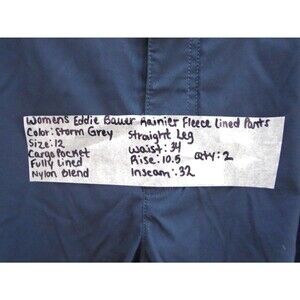 Womens Eddie Bauer Rainier Fleece Lined Pants
Color: Storm Grey Straight Leg
Size: 12 Waist: 34
Cargo Pocket Rise: 10.5 Qty: 2
Fully Lined Inseam: 32
Nylon Blend